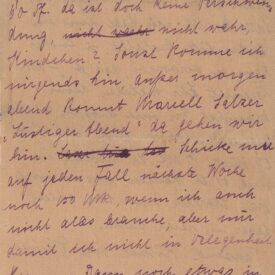 50 Pf. da ist doch keine Verschwen-
dung, nicht wahr nicht wahr,
Kindchen? Sonst komme ich
nirgends hin außer morgen
abend kommt Marcell Salzer
"Lustiger Abend" da gehen wir
hin. Schicke mir
auf jeden Fall nächste Woche
noch 100 Mk, wenn ich auch
nicht alles brauche, aber nur
damit ich nicht in Verlegenheit
Dann noch etwas in